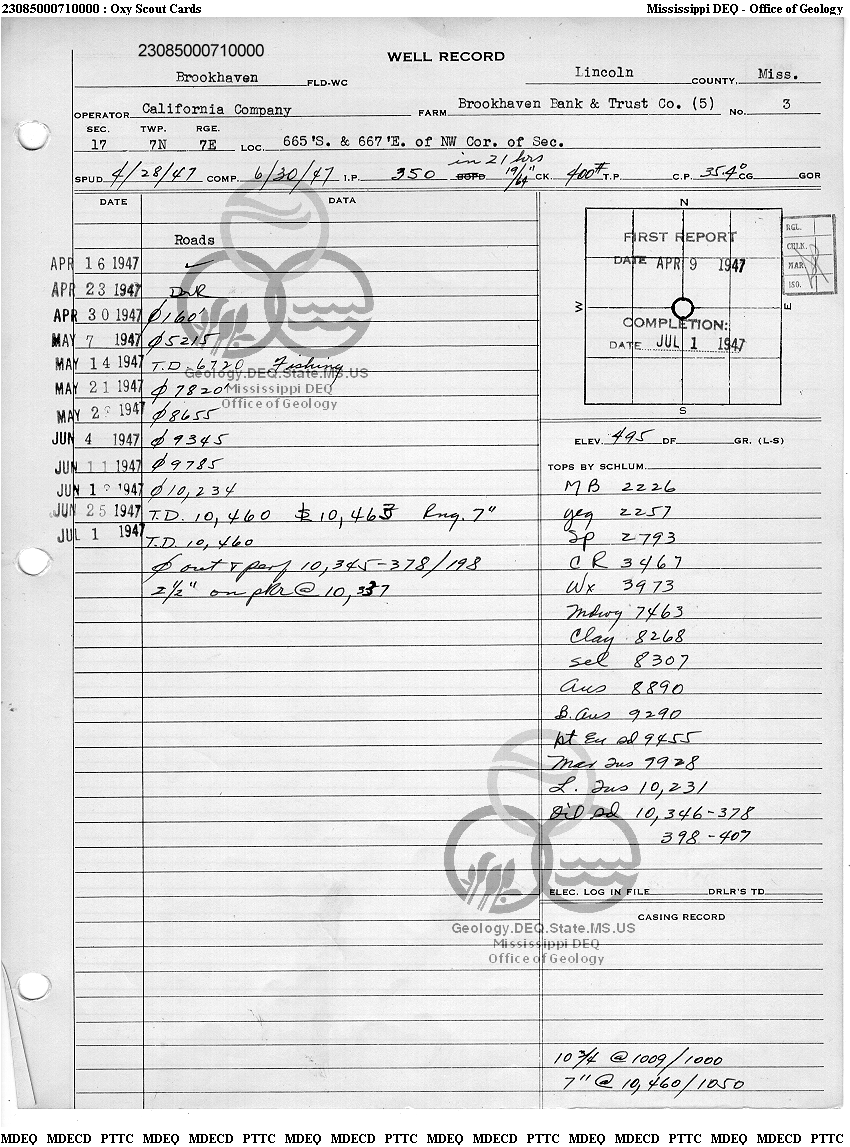 23085000710000 : Oxy Scout Cards Mississippi DEQ - Office of Geology
23085000710000
WELL RECORD
Brookhaven FLD-WC Lincoln COUNTY, Miss.
OPERATOR California Company FARM Brookhaven Bank & Trust Co. (5) No. 3
SEC. TWP. RGE.
17 7N 7E LOC. 665'S. & 667'E. of NW Cor. of Sec.
in 21 hrs
SPUD 4/28/47 COMP. 6/30/47 I.P. 350 BOPD 19/64" CK. 400# T.P. C.P. 35.4° CG GOR
DATE DATA
Roads
APR 16 1947 ✓
APR 23 1947 DnR
APR 30 1947 ∅ 160'
MAY 7 1947 ∅ 5215
MAY 14 1947 T.D. 6720 Fishing
MAY 21 1947 ∅ 7820
MAY 2 1947 ∅ 8655
JUN 4 1947 ∅ 9345
JUN 11 1947 ∅ 9785
JUN 1 1947 ∅ 10,234
JUN 25 1947 T.D. 10,460 10,463 Rng. 7"
JUL 1 1947 T.D. 10,460
∅ out & perf 10,345-378/198
2½" on pkr @ 10,337
Geology.DEQ.State.MS.US
Mississippi DEQ
Office of Geology
N
W
E
S
FIRST REPORT
DATE APR 9 1947
COMPLETION:
DATE JUL 1 1947
RGL.
CHLK.
MAR.
ISO.
ELEV. 495 DF GR. (L-S)
TOPS BY SCHLUM.
MB 2226
yeg 2257
Sp 2793
CR 3467
Wx 3973
Mdwy 7463
Clay 8268
Sel 8307
Aus 8890
B. Aus 9290
pt Eu sd 9455
Mar Tus 9928
L. Tus 10,231
Oil sd 10,346-378
398-407
ELEC. LOG IN FILE DRLR'S TD
CASING RECORD
Geology.DEQ.State.MS.US
Mississippi DEQ
Office of Geology
10 3/4 @ 1009/1000
7" @ 10,460/1050
MDEQ MDECD PTTC MDEQ MDECD PTTC MDEQ MDECD PTTC MDEQ MDECD PTTC MDEQ MDECD PTTC MDEQ MDECD PTTC